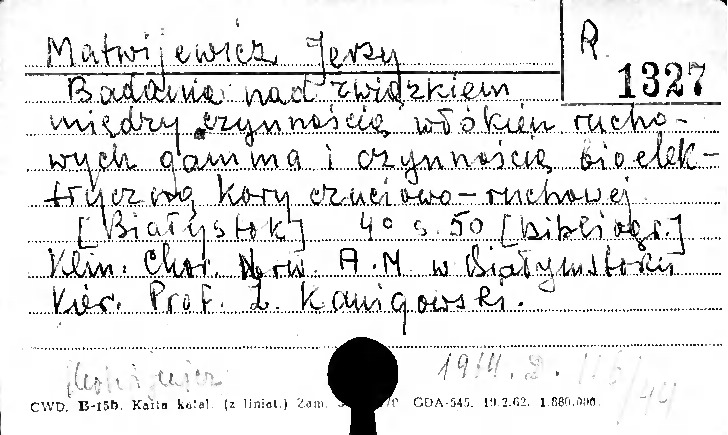 Matwijewicz Jerzy
R.
1327
Badania nad związkiem
między czynnością włókien rucho-
wych gamma i czynnością bioelek-
tryczną kory czuciowo-ruchowej
[Białystok] 4° s. 50 [bibliogr.]
Klin. Chor. Nerw. A.M. w Białymstoku
Kier. Prof. Z. Kanigowski.
CWD. B-15b. Karta katal. (z liniat.) Zam. GDA-545. 19.2.62. 1.880.000.